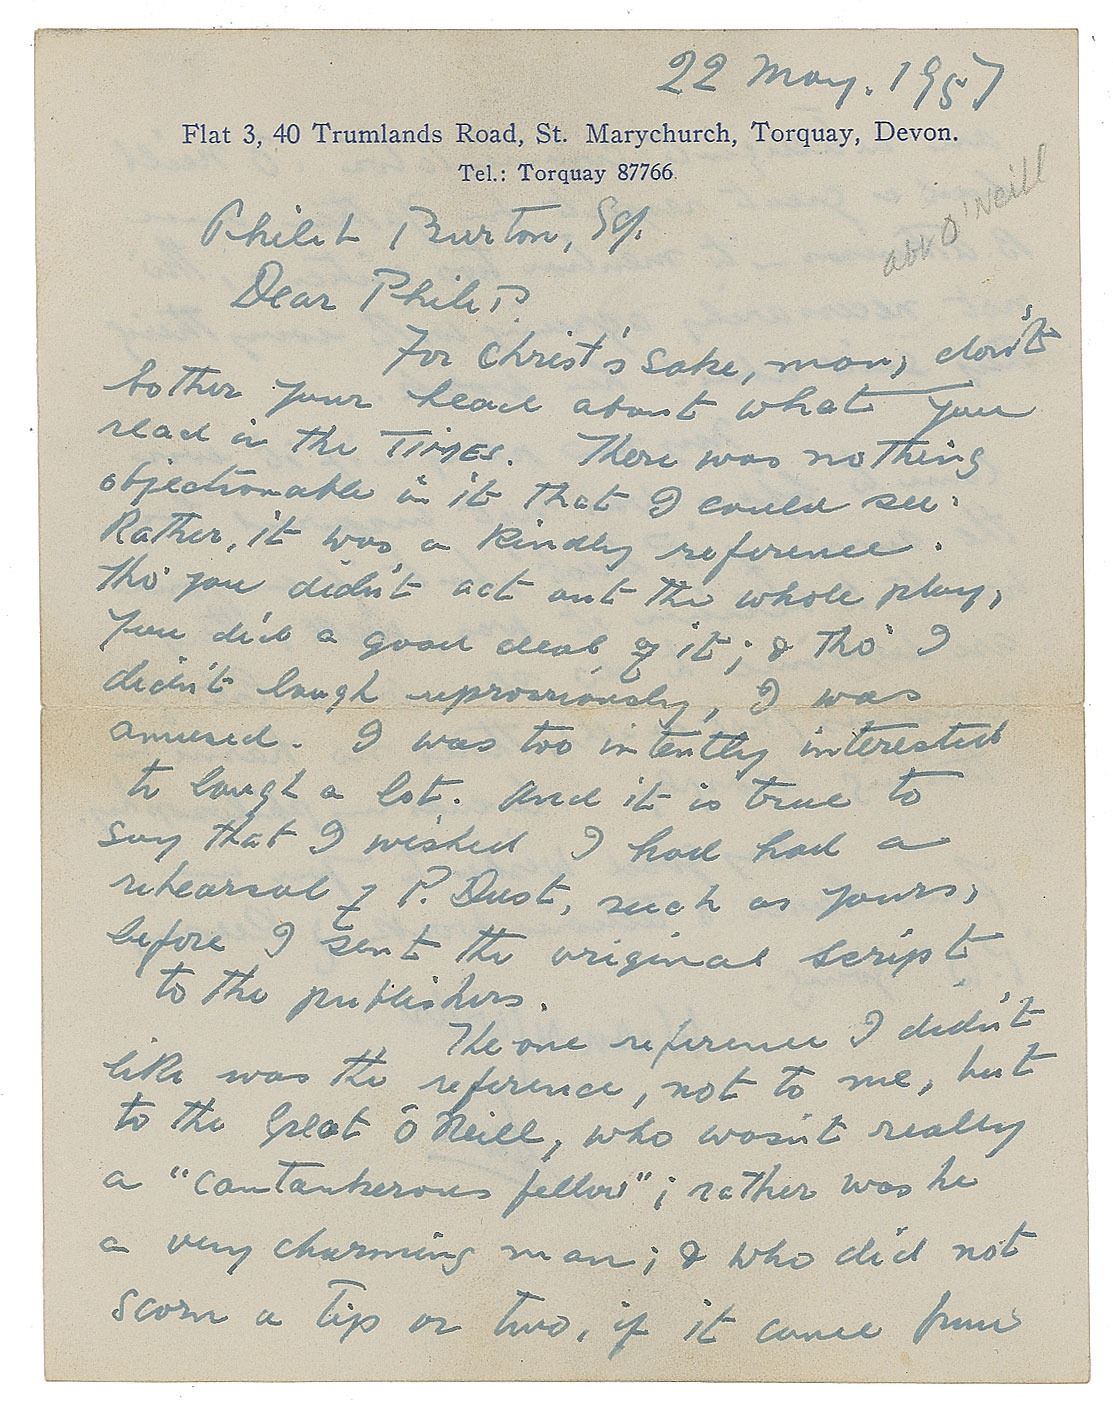 22 May. 1957
Flat 3, 40 Trumlands Road, St. Marychurch, Torquay, Devon.
Tel.: Torquay 87766
abt O'Neill
Philip Burton, Esq.
Dear Philip.
For Christ's sake, man, don't
bother your head about what you
read in the TIMES. There was nothing
objectionable in it that I could see.
Rather, it was a kindly reference.
Tho' you didn't act out the whole play,
you did a good deal of it; & tho' I
didn't laugh uproariously, I was
amused. I was too intently interested
to laugh a lot. And it is true to
say that I wished I had had a
rehearsal of P. Dust, such as yours,
before I sent the original script
to the publishers.
The one reference I didn't
like was the reference, not to me, but
to the Great O'Neill, who wasn't really
a "cantankerous fellow"; rather was he
a very charming man; & who did not
scorn a tip or two, if it came from